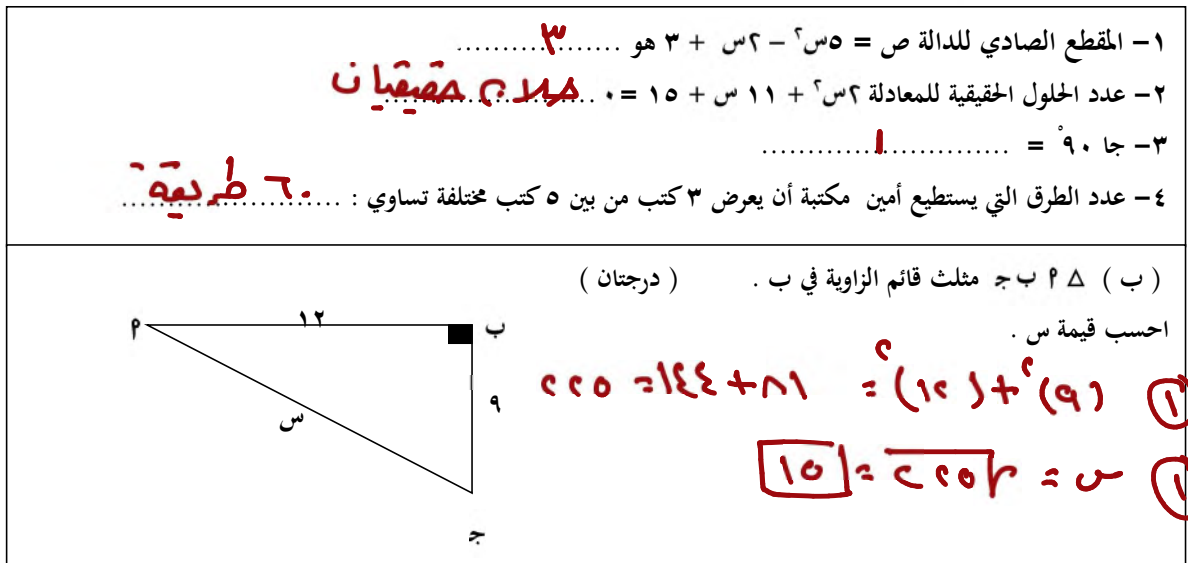 ١– المقطع الصادي للدالة ص = ٥س٢ – ٢س + ٣ هو ........٣........
٢– عدد الحلول الحقيقية للمعادلة ٢س٢ + ١١ س + ١٥ = ٠ ........ حلان حقيقيان
٣– جا ٩٠° = ............١............
٤– عدد الطرق التي يستطيع أمين مكتبة أن يعرض ٣ كتب من بين ٥ كتب مختلفة تساوي : ........ ٦٠ طريقة ........
( ب ) △ ٢ ب ج مثلث قائم الزاوية في ب . ( درجتان )
احسب قيمة س .
١ (٩)٢ + (١٢)٢ = ٨١ + ١٤٤ = ٢٢٥
١ س = √٢٢٥ = ١٥
ب
١٢
٢
٩
س
ج